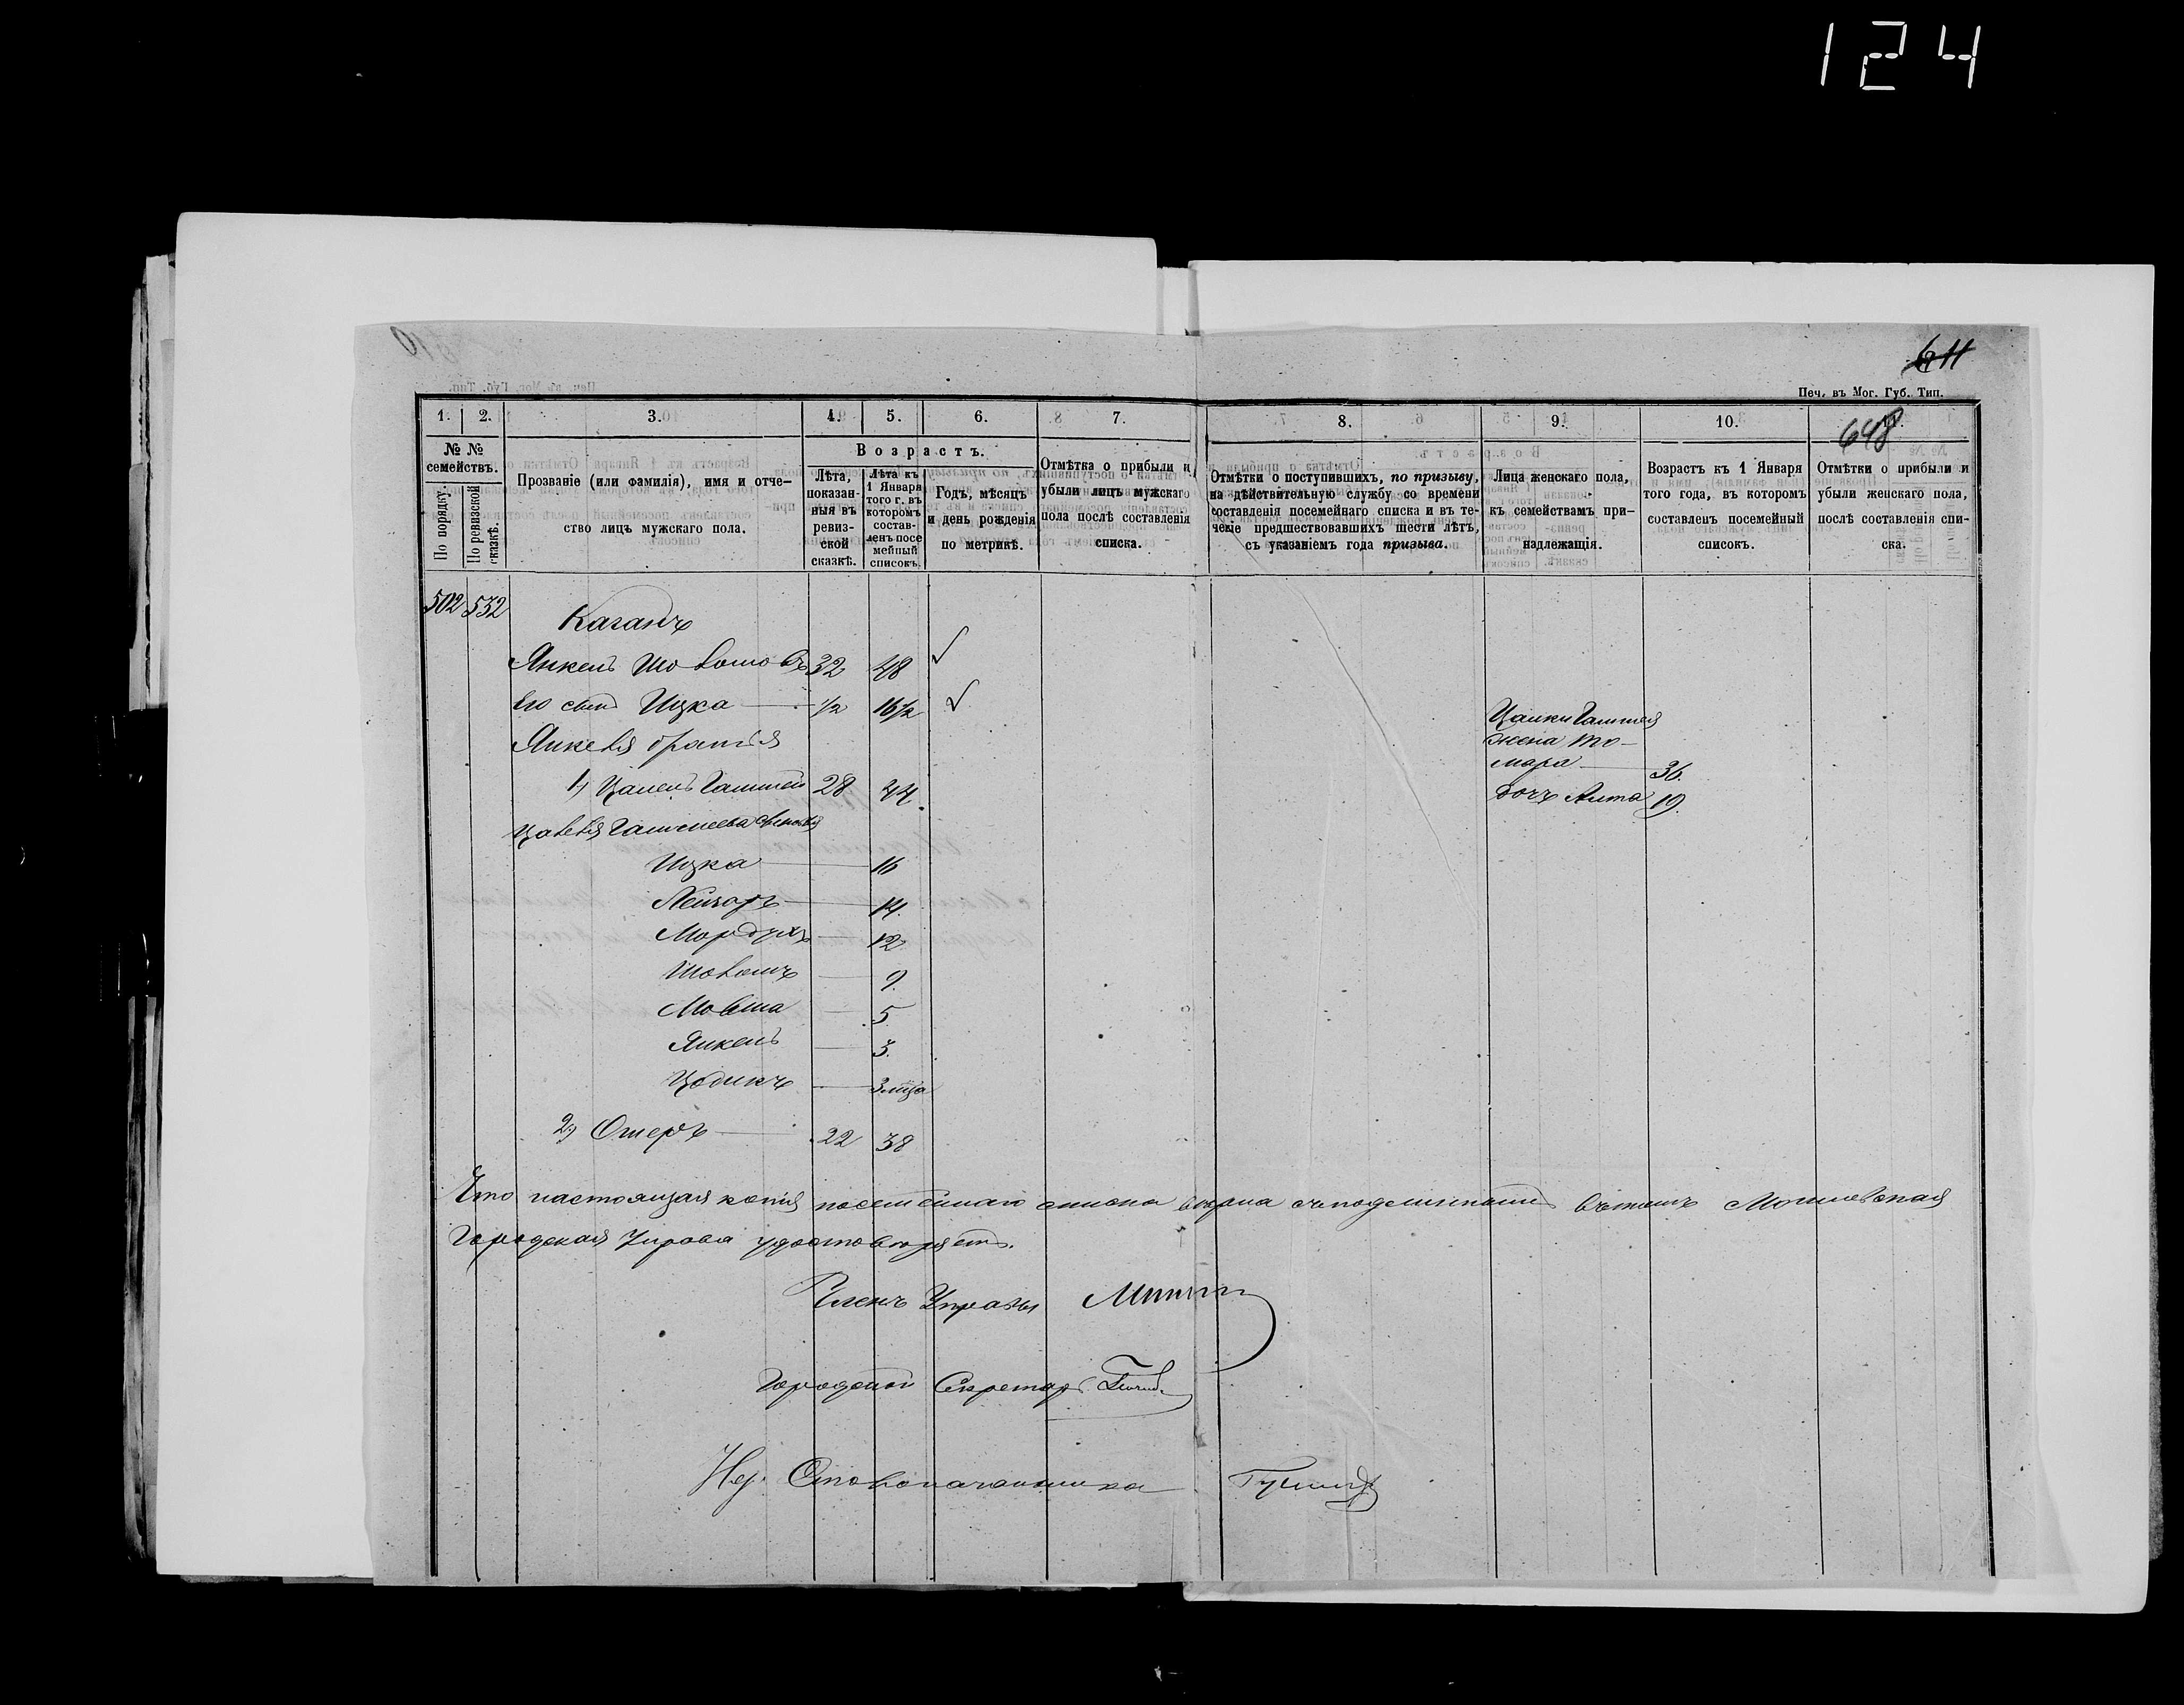 124
611
Печ. въ Мог. Губ. Тип.
648
1. 2. 3. 4. 5. 6. 7. 8. 9. 10. 11.
№ № семействъ.
По порядку.
По ревизской сказкѣ.
Прозваніе (или фамилія), имя и отче-
ство лицъ мужскаго пола.
Возрастъ.
Лѣта, показан-
ныя въ ревиз-
ской сказкѣ.
Лѣта къ 1 Января
того г. въ которомъ
состав-
ленъ посе
мейный
списокъ.
Годъ, мѣсяцъ
и день рожденія
по метрикѣ.
Отмѣтка о прибыли и
убыли лицъ мужскаго
пола послѣ составленія
списка.
Отмѣтки о поступившихъ, по призыву,
на дѣйствительную службу со времени
составленія посемейнаго списка и въ те-
ченіе предшествовавшихъ шести лѣтъ,
съ указаніемъ года призыва.
Лица женскаго пола,
къ семействамъ при-
надлежащія.
Возрастъ къ 1 Января
того года, въ которомъ
составленъ посемейный
списокъ.
Отмѣтки о прибыли и
убыли женскаго пола,
послѣ составленія спи-
ска.
502 532
Каганъ
Янкель Шоломовъ 32 48
Его сынъ Ицка 1/2 16 1/2
Янкеля братья
1) Цалель Гашкей 28 44.
Цалеля сыновья
Ицка 16
Лейзаръ 14.
Мордухъ 12
Шоломъ 9.
Мовша 5
Янкель 3.
Цодикъ 3 мца
2) Ошеръ 22 38
жена То-
мара 36.
дочь Алта 19.
Что настоящая копія посемейнаго списка вѣрна съ подлиннымъ въ томъ Могилевская
Городская Управа удостовѣряетъ.
Членъ Управы
Городской Секретарь
Столоначальника